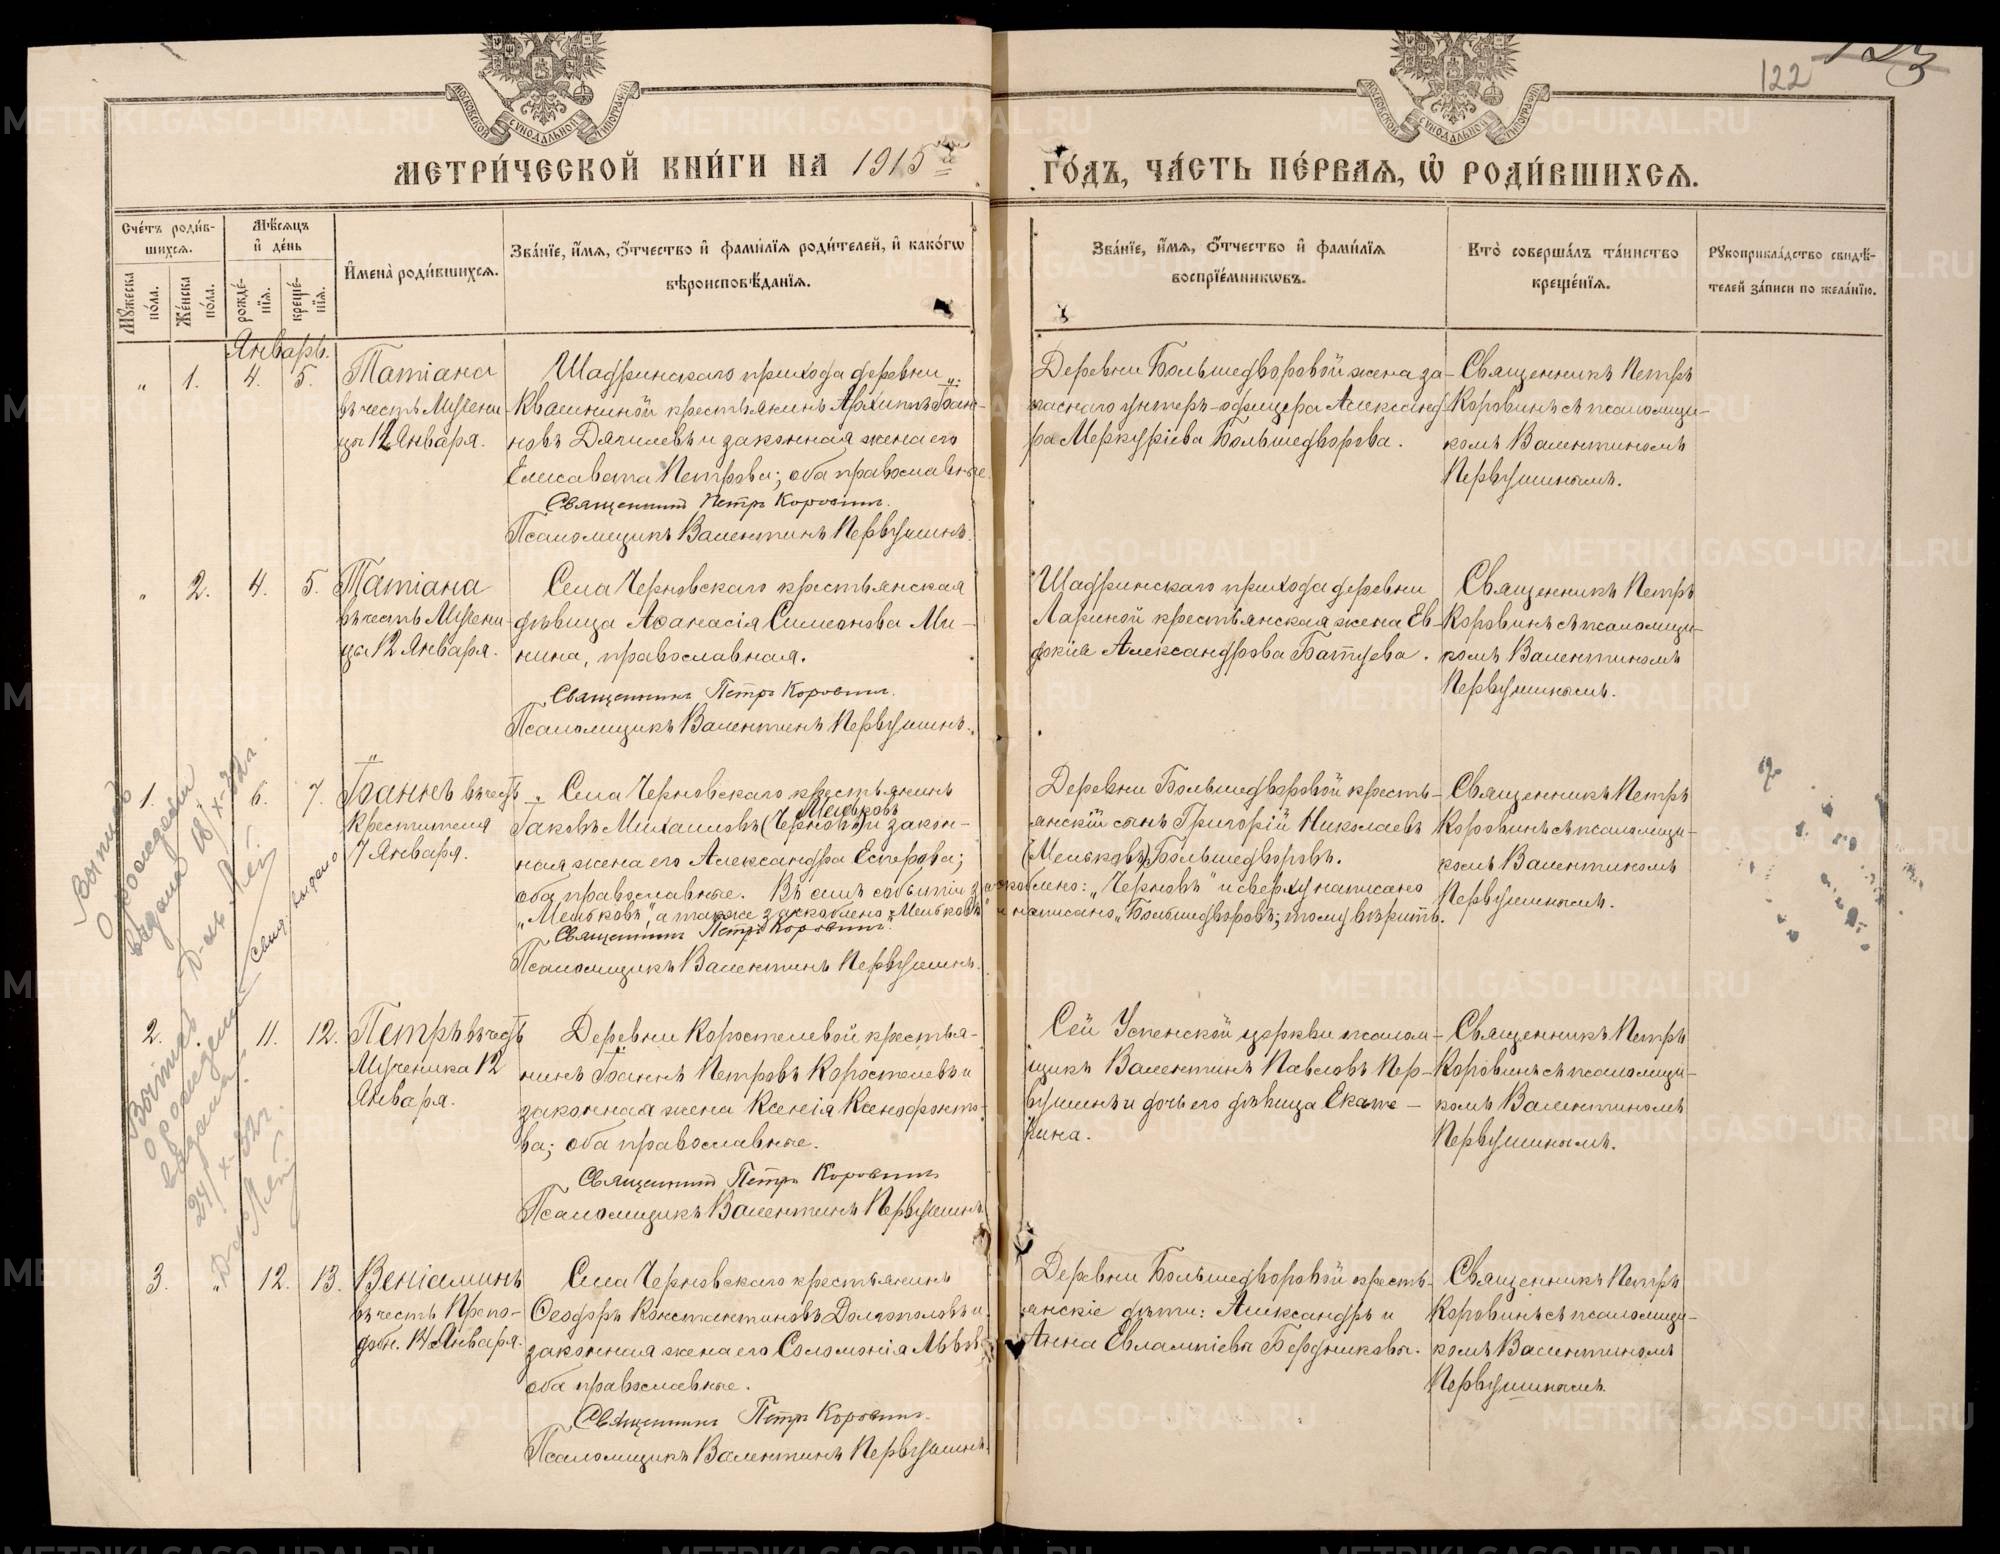 122
123
МОСКОВСКОЙ СѴНОДАЛЬНОЙ ТИПОГРАФІИ
МОСКОВСКОЙ СѴНОДАЛЬНОЙ ТИПОГРАФІИ
МЕТРИ́ЧЕСКОЙ КНИ́ГИ НА 1915 ГО́ДЪ, ЧА́СТЬ ПЕ́РВАѦ, Ѡ҆ РОДИ́ВШИХСѦ.
Сче́тъ роди́в-
шихсѧ.
Мꙋжеска по́ла.
Же́нска по́ла.
Мѣ́сѧцъ
и҆ де́нь
рожде́-
нїѧ.
креще́-
нїѧ.
И҆мена̀ роди́вшихсѧ.
Зва́нїе, и҆́мѧ, ѻ҆́тчество и҆ фами́лїѧ роди́телей, и҆ како́гѡ
вѣроисповѣ́данїѧ.
Зва́нїе, и҆́мѧ, ѻ҆́тчество и҆ фами́лїѧ
воспрїе́мникѡвъ.
Кто̀ соверша́лъ та́инство
креще́нїѧ.
Рꙋкоприкла́дство свидѣ́-
телей за́писи по жела́нїю.
Январь.
„ 1. 4. 5.
Татіана
въ честь Мучени-
цы 12 Января.
Шадринскаго прихода деревни
Квашниной крестьянинъ Архиппъ Іоан-
новъ Дягилевъ и законная жена его
Елисавета Петрова; оба православные
Священникъ Петръ Коровинъ.
Псаломщикъ Валентинъ Первушинъ.
Деревни Большедворовой жена за-
паснаго унтеръ-офицера Александ-
ра Меркуріева Большедворова.
Священникъ Петръ
Коровинъ съ псаломщи-
комъ Валентиномъ
Первушинымъ.
„ 2. 4. 5.
Татіана
въ честь Мучени-
цы 12 Января.
Села Черновскаго крестьянская
дѣвица Аѳанасія Симеонова Ми-
нина, православная.
Священникъ Петръ Коровинъ.
Псаломщикъ Валентинъ Первушинъ.
Шадринскаго прихода деревни
Лариной крестьянская жена Ев-
докія Александрова Батуева.
Священникъ Петръ
Коровинъ съ псаломщи-
комъ Валентиномъ
Первушинымъ.
1. „ 6. 7.
Іоаннъ въ честь
Крестителя
7 Января.
Села Черновскаго крестьянинъ
Меньковъ
Іаковъ Михаиловъ (Черновъ) и закон-
ная жена его Александра Егорова;
оба православные. Въ семъ событіи заскоблено: „Черновъ" и сверху написано
„Меньковъ", а также заскоблено „Меньковъ" и написано „Большедворовъ; тому вѣрить.
Священникъ Петръ Коровинъ.
Псаломщикъ Валентинъ Первушинъ.
Деревни Большедворовой кресть-
янскій сынъ Григорій Николаевъ
(Меньковъ) Большедворовъ.
Священникъ Петръ
Коровинъ съ псаломщи-
комъ Валентиномъ
Первушинымъ.
Выпись
о рождении
выдана 18/X-32 г.
свид. выдано
2. 11. 12.
Петръ въ честь
Мученика 12
Января.
Деревни Коростелевой крестья-
нинъ Іоаннъ Петровъ Коростелевъ и
законная жена Ксенія Ксенофонто-
ва; оба православные.
Священникъ Петръ Коровинъ
Псаломщикъ Валентинъ Первушинъ
Сей Успенской церкви псалом-
щикъ Валентинъ Павловъ Пер-
вушинъ и дочь его дѣвица Екате-
рина.
Священникъ Петръ
Коровинъ съ псаломщи-
комъ Валентиномъ
Первушинымъ.
Выпись
о рождении
выдана
24/X-32 г.
3. „ 12. 13.
Веніаминъ
въ честь Препо-
добн. 14 Января.
Села Черновскаго крестьянинъ
Ѳеодоръ Константиновъ Долгополовъ и
законная жена его Соломонія Львова
оба православные.
Священникъ Петръ Коровинъ.
Псаломщикъ Валентинъ Первушинъ.
Деревни Большедворовой кресть-
янскіе дѣти: Александръ и
Анна Евлампіевы Бердниковы.
Священникъ Петръ
Коровинъ съ псаломщи-
комъ Валентиномъ
Первушинымъ.
METRIKI.GASO-URAL.RU